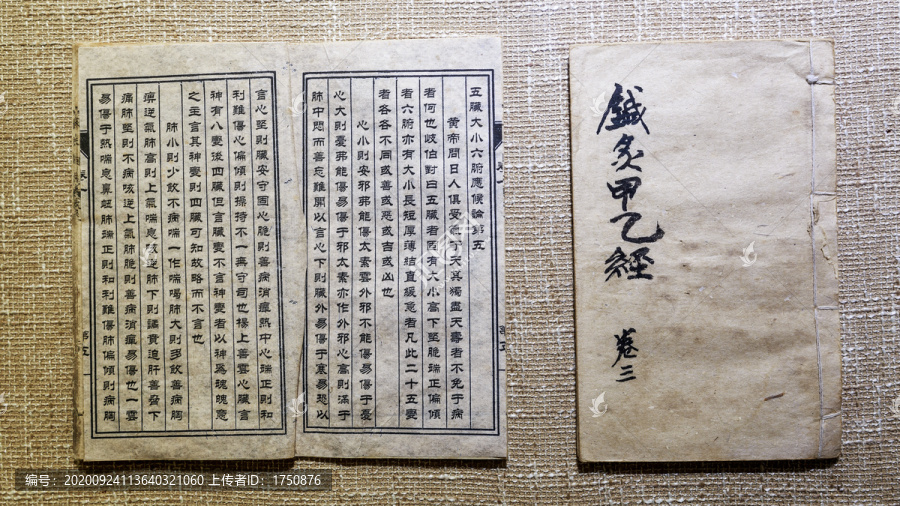 五臟大小六腑應候論第五
黃帝問曰人俱受氣于天其獨盡天壽者不免于病
者何也岐伯對曰五臟者固有大小高下堅脆端正偏傾
者六腑亦有大小長短厚薄結直緩急者凡此二十五變
者各各不同或善或惡或吉或凶也
心小則安邪弗能傷太素云外邪不能傷易傷于憂
心大則憂弗能傷易傷于邪太素亦作外邪心高則滿于
肺中悶而善忘難開以言心下則臟外易傷于寒易恐以
言心堅則臟安守固心脆則善病消癉熱中心端正則和
利難傷心偏傾則操持不一無守司也楊上善云心臟言
神有八變後四臟但言臟變不言神變者以神為魂魄意
之主言其神變則四臟可知故略而不言也
肺小則少飲不病喘一作喘喝肺大則多飲善病胸
痹逆氣肺高則上氣喘息咳逆肺下則 賁迫肝善脅下
痛肺堅則不病咳逆上氣肺脆則善病消癉易傷也一云
易傷于熱喘息鼻衄肺端正則和利難傷肺偏傾則病胸
鍼灸甲乙經
卷三
编号：20200924113640321060 上传者ID：1750876